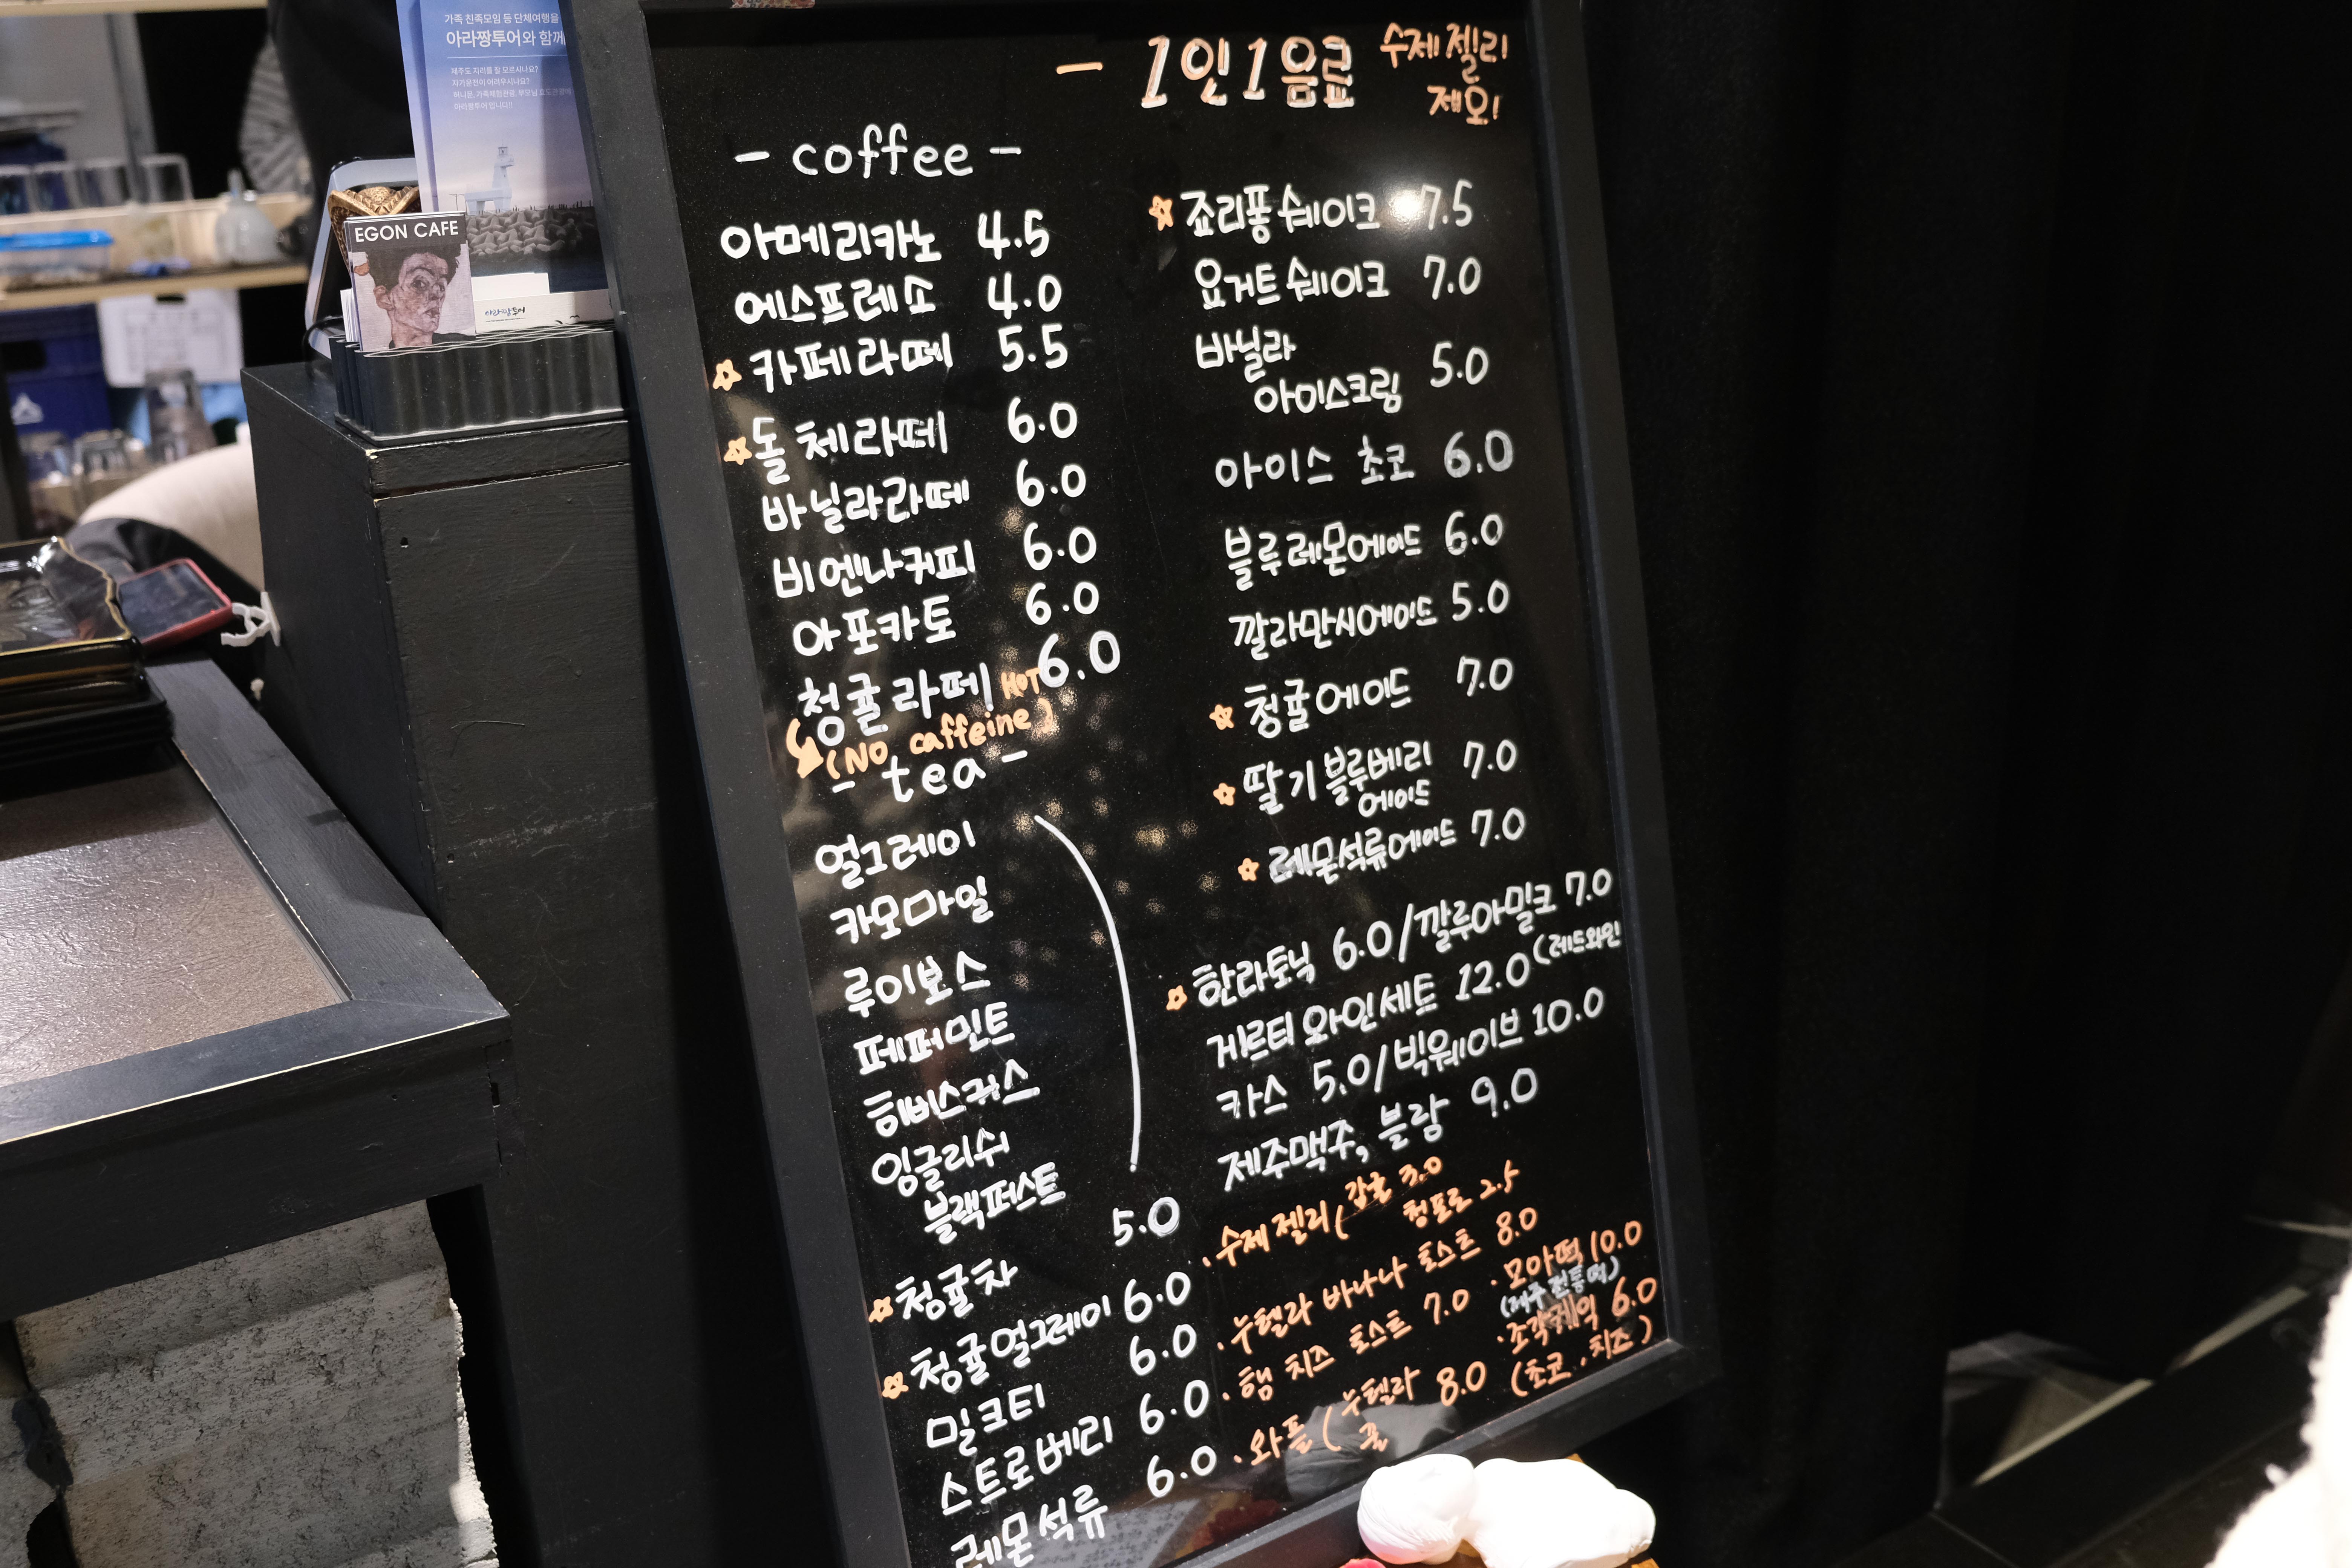 가족 친족모임 등 단체여행을
아라짱투어와 함께
제주도 지리를 잘 모르시나요?
자가운전이 어려우시나요?
아라짱투어 입니다!!
EGON CAFE
아라짱투어
- 1인 1음료 수제 젤리
제외!
- coffee -
아메리카노 4.5
에스프레소 4.0
카페라떼 5.5
돌체라떼 6.0
바닐라라떼 6.0
비엔나커피 6.0
아포카토 6.0
청귤라떼 HOT 6.0
(NO caffeine)
- tea -
얼그레이
카모마일
루이보스
페퍼민트
히비스커스
잉글리쉬
블랙퍼스트
5.0
청귤차 6.0
청귤얼그레이 6.0
밀크티 6.0
스트로베리 6.0
레몬석류
죠리퐁쉐이크 7.5
요거트쉐이크 7.0
바닐라
아이스크림 5.0
아이스 초코 6.0
블루레몬에이드 6.0
깔라만시에이드 5.0
청귤에이드 7.0
딸기블루베리
에이드 7.0
레몬석류에이드 7.0
한라토닉 6.0/깔루아밀크 7.0
게르티와인세트 12.0 (레드와인
카스 5.0/빅웨이브 10.0
제주맥주, 블랑 9.0
· 수제 젤리 ( 감귤 3.0
청포도 2.5
· 누텔라 바나나 토스트 8.0
· 햄 치즈 토스트 7.0
· 와플 ( 누텔라 8.0
꿀
· 모아떡 10.0
(제주 전통떡)
· 조각케익 6.0
(초코, 치즈)